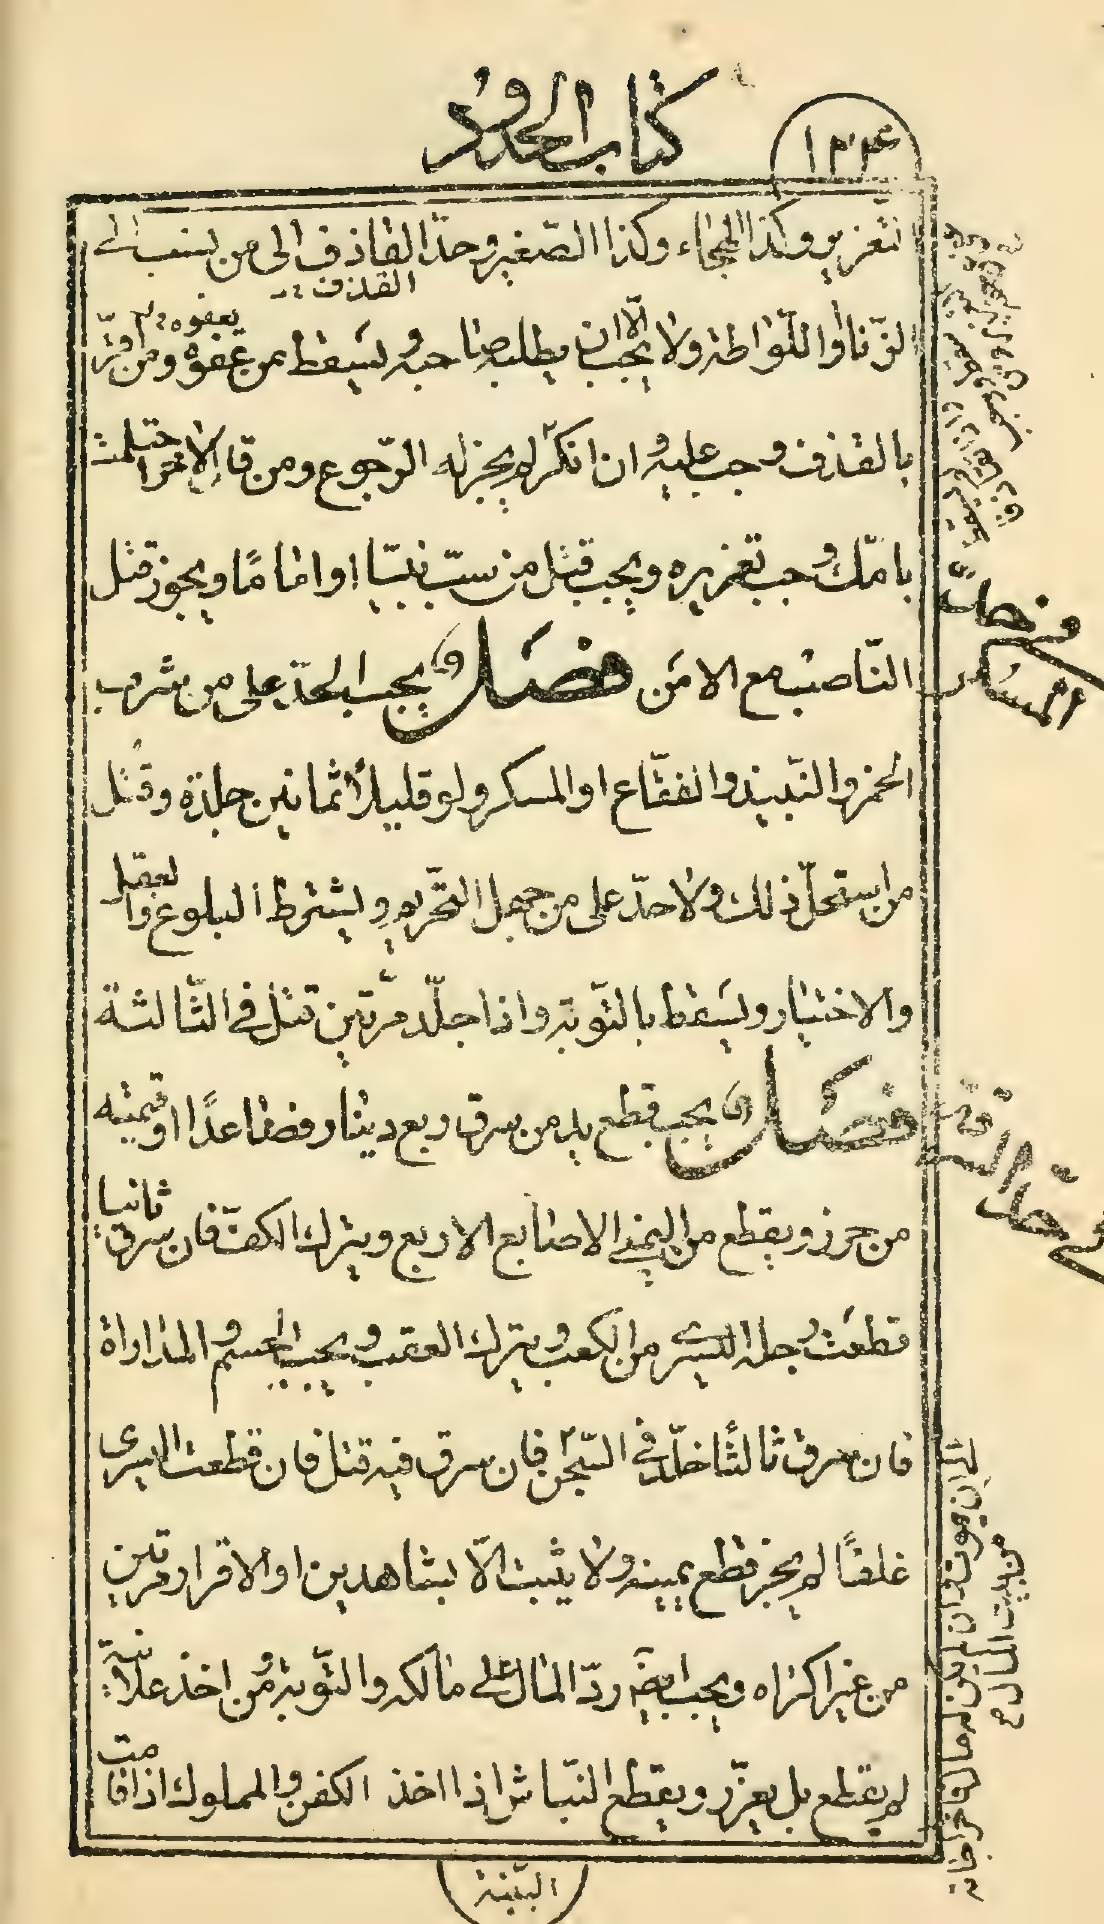 كتاب الحدود
١٣٤
تعزير وكذا الهجاء وكذا الصغير وحدّ القاذف الى من ينسب الى
القذف
الزنا واللّواطة ولا يجب الّا ان يطلبه صاحبه ويسقط بمن عفوه ومن اقرّ
يعفوه
بالقذف وجب عليه وان انكر لم يجز له الرّجوع ومن قال لاخر احتلمت
بامّك وجب تعزيره ويجب قتل من سبّ نبيّا او اماما ويجوز قتل
النّاصب مع الامن فصل يجب الحدّ على من شرب
في حدّ المسكر
الخمر والنّبيذ والفقّاع او المسكر ولو قليلا ثمانين جلدة وقتل
من استحلّ ذلك ولا حدّ على من جهل التّحريم ويشترط البلوغ والعقل
والاختيار ويسقط بالتّوبة واذا جلّد مرّتين قتل في الثّالثة
فصل يجب قطع يد من سرق ربع دينار فصاعدًا او قيمته
في حدّ السرقة
من حرز ويقطع من اليمنى الاصابع الاربع ويترك الكفّ فان سرق ثانيا
قطعت رجله اليسرى من الكعب ويترك العقب ويجب الحسم والمداراة
فان سرق ثالثًا خلّد في السّجن فان سرق فيه قتل فان قطعت اليسرى
غلطًا لم يجز قطع يمينه ولا يثبت الّا بشاهدين او الاقرار مرتين
من غير اكراه ويجب ايضا ردّ المال على مالكه والتّوبة ومن اخذ علانية
لم يقطع بل يعزّر ويقطع النبّاش اذا اخذ الكفن والمملوك اذا قامت
الى ان يموت وان لم يكن له مال فاخراجاته
من بيت المال م
البيّنة